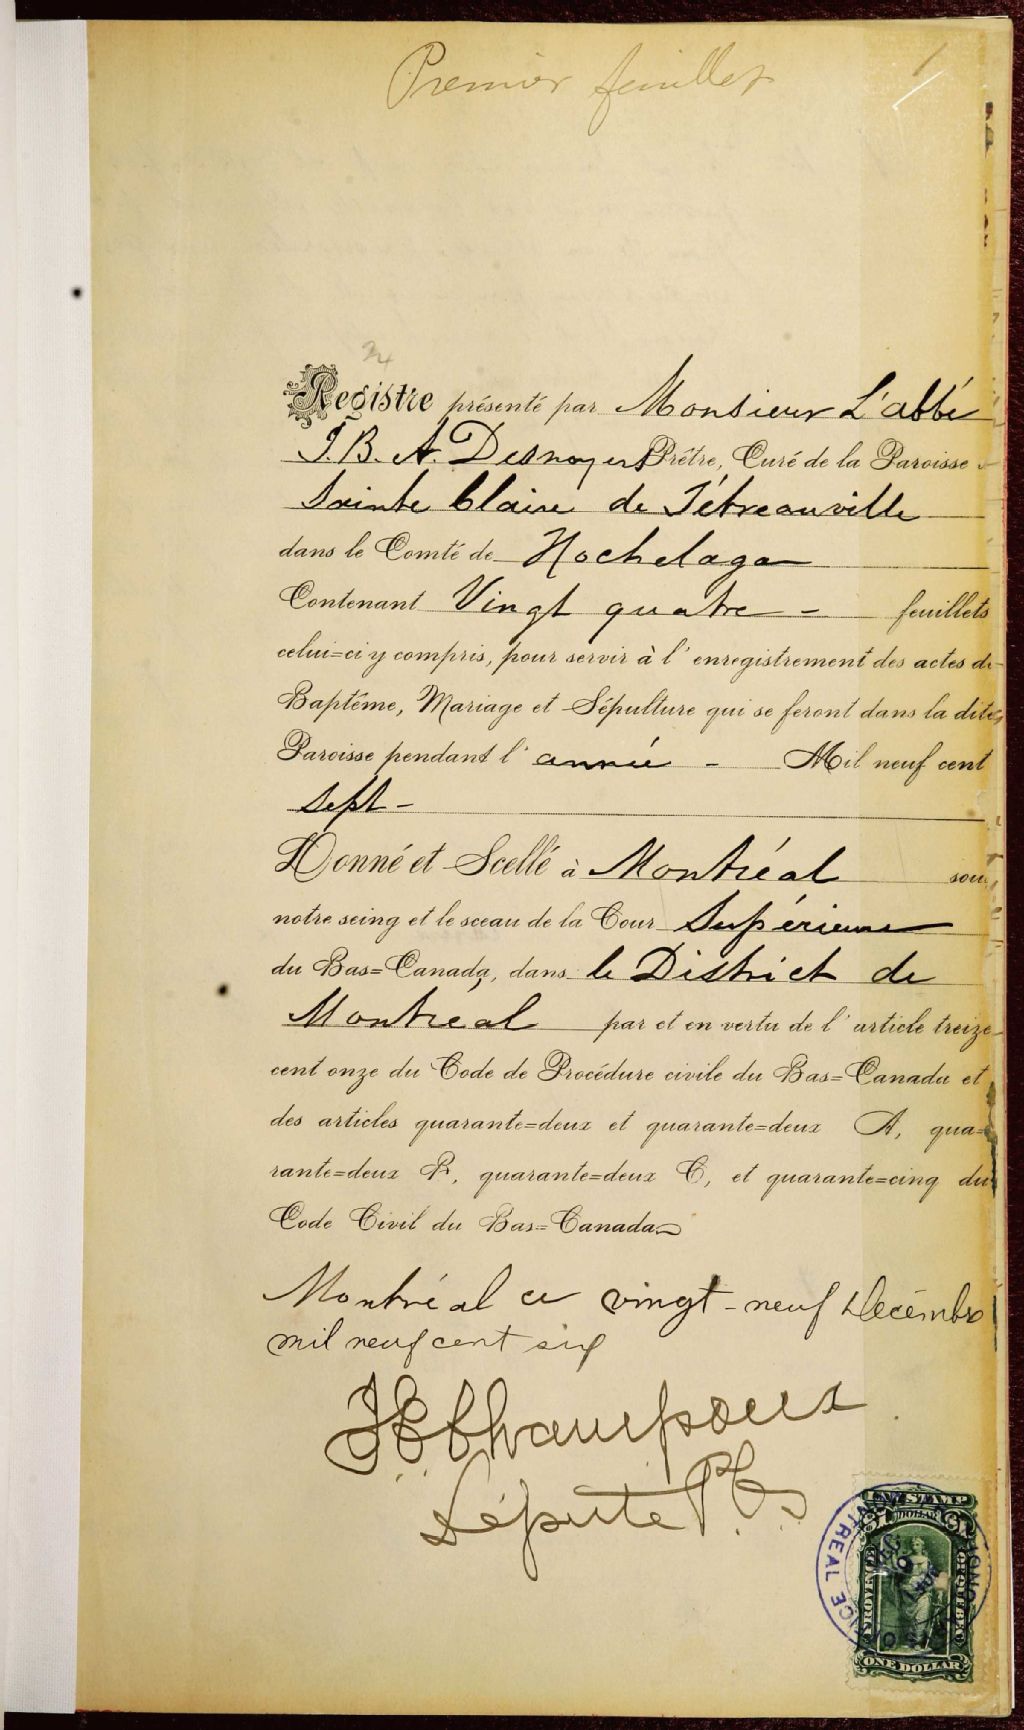 Premier feuillet
1
24
Registre présenté par Monsieur L'abbé
J. B. A. Desnoyers Prêtre, Curé de la Paroisse
Sainte Claire de Tétreauville
dans le Comté de Hochelaga
Contenant Vingt quatre - feuillets
celui=ci y compris, pour servir à l'enregistrement des actes de
Baptême, Mariage et Sépulture qui se feront dans la dite
Paroisse pendant l'année - Mil neuf cent
Sept -
Donné et Scellé à Montréal sous
notre seing et le sceau de la Cour Supérieure
du Bas=Canada, dans le District de
Montréal par et en vertu de l'article treize
cent onze du Code de Procédure civile du Bas=Canada et
des articles quarante=deux et quarante=deux A, qua=
rante=deux B, quarante=deux C, et quarante=cinq du
Code Civil du Bas=Canada
Montréal ce vingt-neuf Décembre
mil neuf cent six
Champoux
Député P.C.S.
LAW STAMP
DOLLAR
MONTREAL
ONE DOLLAR